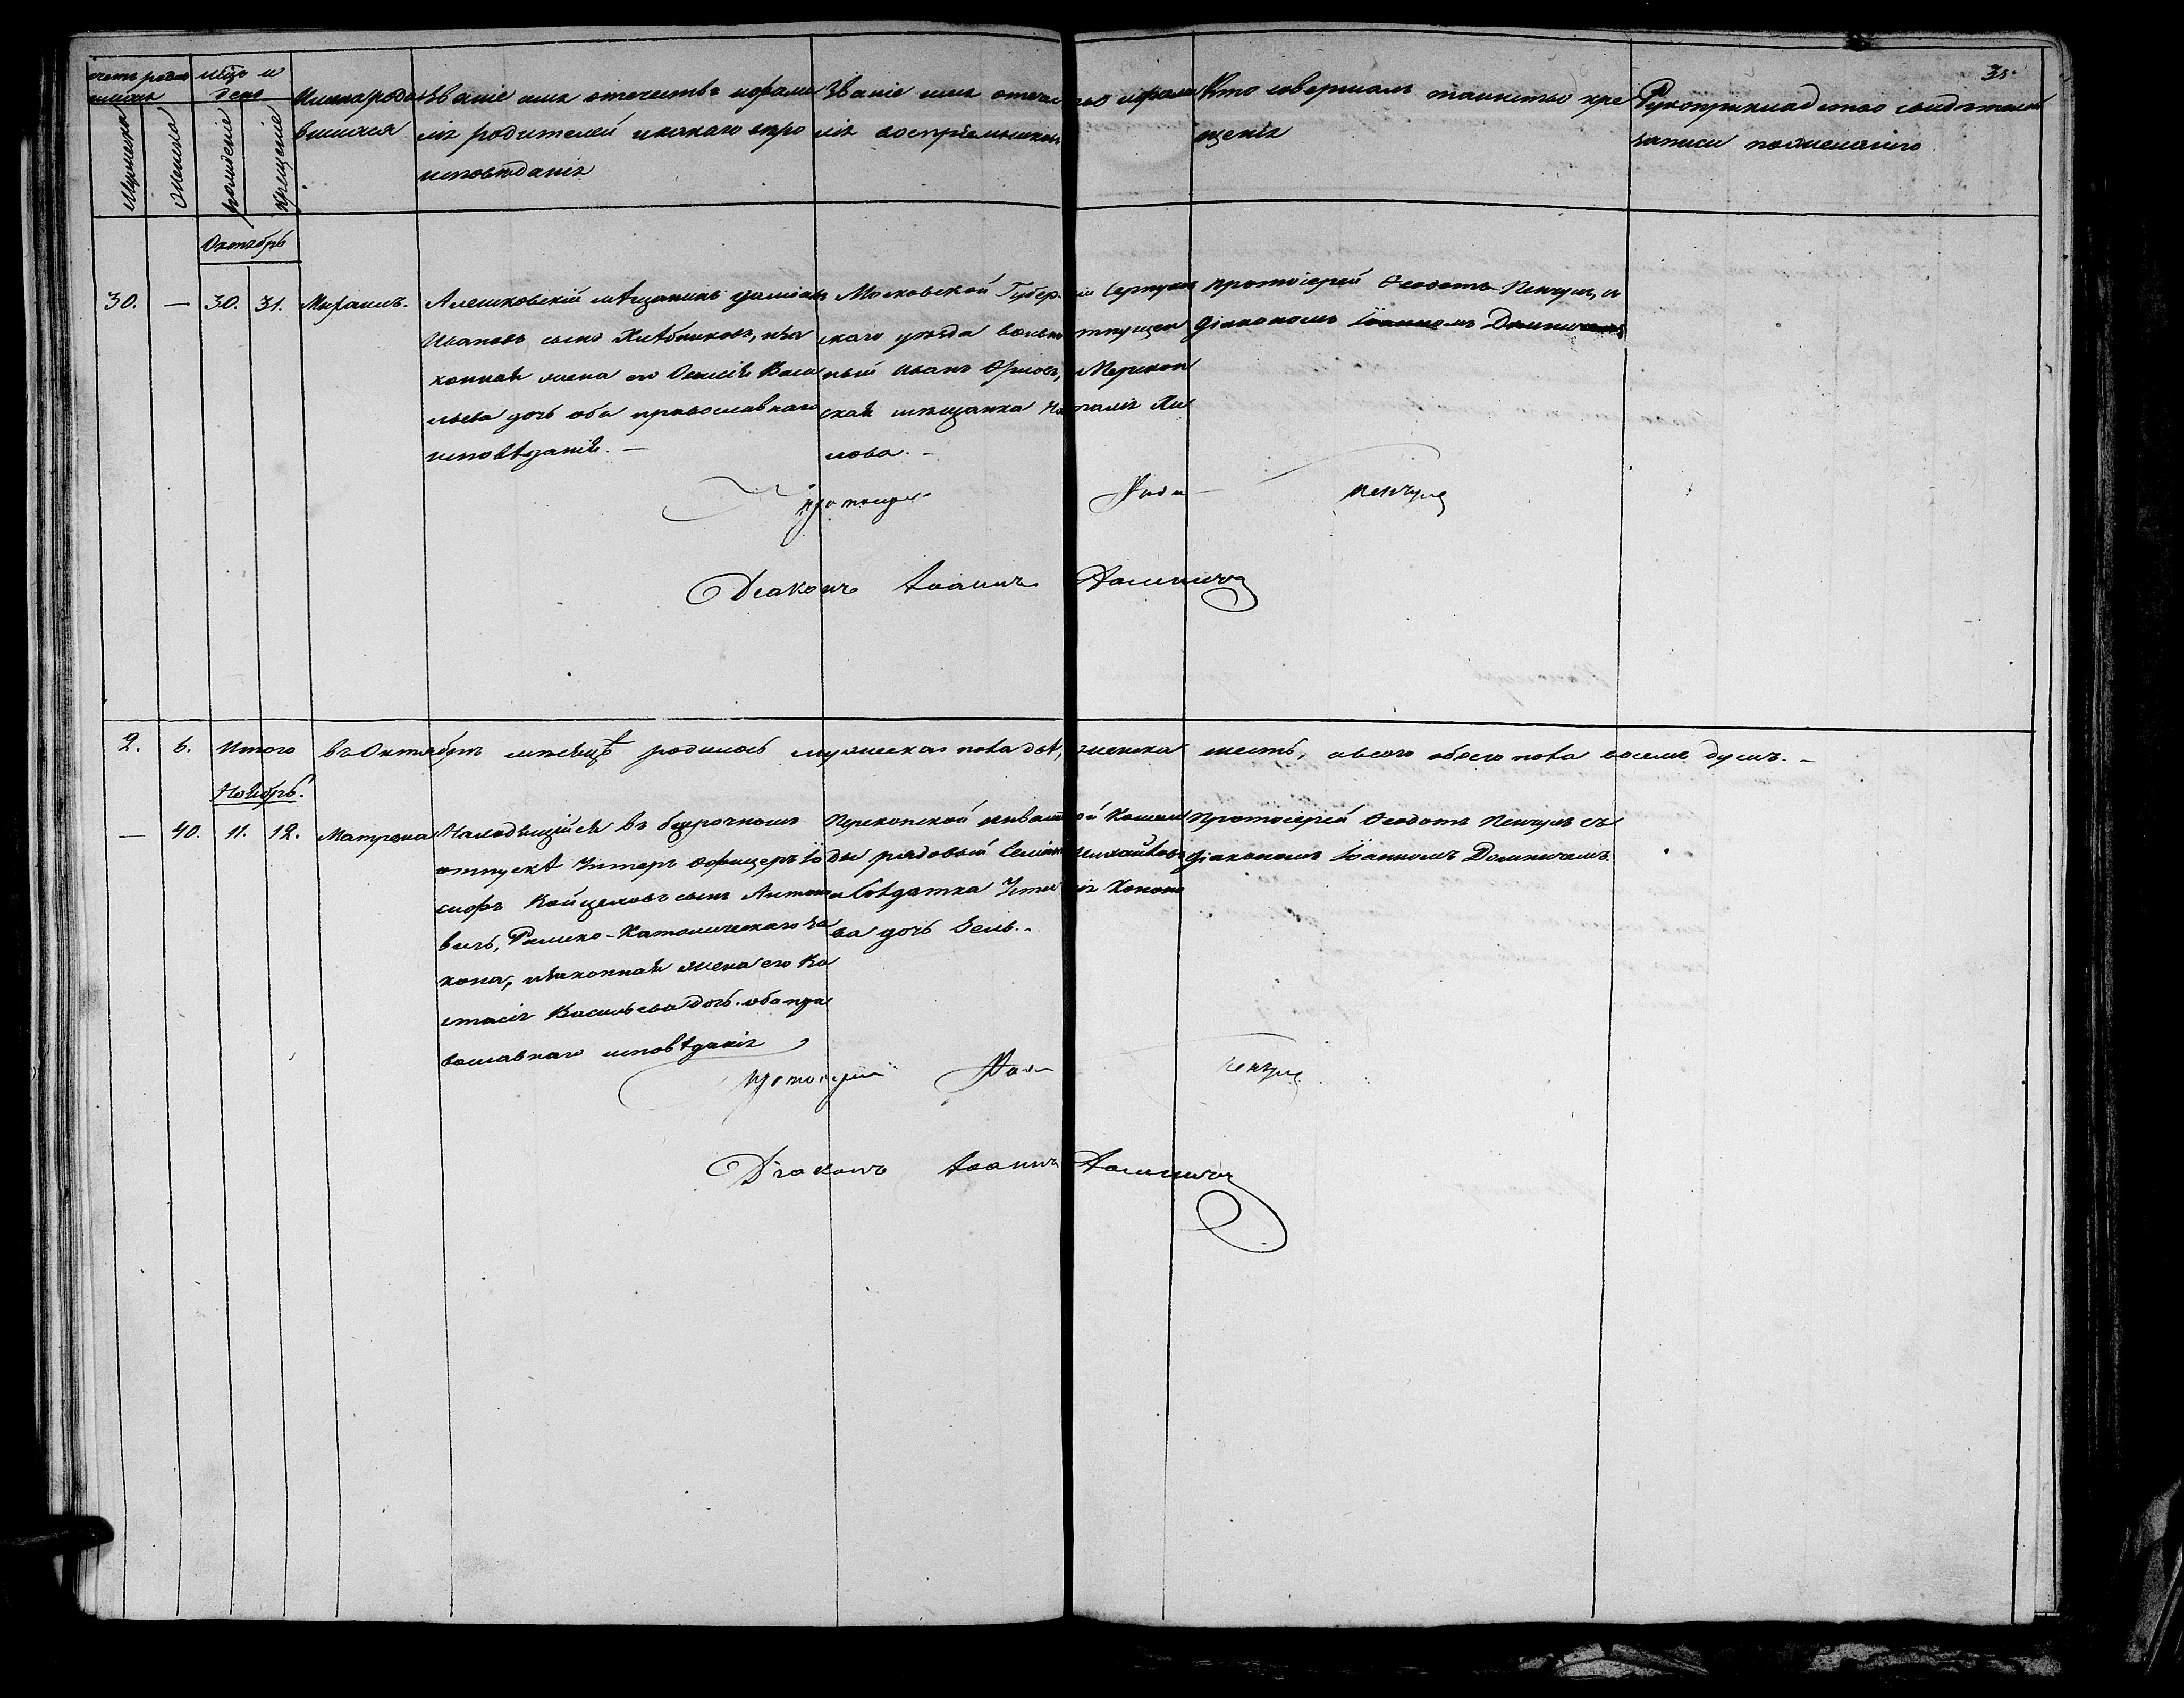 31.
счетъ родив
шихся
мѣсяцъ и
день
Имена родив
шихся
Званіе имя отечество и фами
лія родителей и какого вѣро
исповѣданія
Званіе имя отечество и фами
лія воспріемниковъ
Кто совершалъ таинство кре
щенія
Рукоприкладство свидѣтелей
записи по желанію
Мужеска
Женска
рожденіе
крещеніе
Октябрь
30. — 30. 31. Михаилъ.
Алешковскій мѣщанинъ Даміанъ
Ивановъ сынъ Хлѣбниковъ, и за
конная жена его Васи
льева дочь оба православнаго
исповѣданія. —
Московской Губерніи Серпухов
скаго уѣзда вольноотпущен
ный Иванъ Орловъ, и Перекоп
ская мѣщанка Наталія
лова. —
Протоіерей Ѳеодотъ Пенчулъ, съ
діакономъ Іоанномъ
Протоіерей Ѳеодотъ Пенчулъ
Діаконъ Іоаннъ
2. 6. Итого въ Октябрѣ мѣсяцѣ родилось мужеска пола двѣ, женска шесть, а всего обоего пола восемь душъ. —
Ноябрь.
— 40. 11. 12. Матрона
Находящійся въ безсрочномъ
отпускѣ Унтеръ Офицеръ Іо
сифъ сынъ Антоно
вичъ, Римско-Католическаго за
кона, и законная жена его
стасія Васильева дочь. оба пра
вославнаго исповѣданія
Перекопской инвалидной Коман
ды рядовый Семенъ Михайловъ
и Солдатка Устинія Конона
ва дочь
Протоіерей Ѳеодотъ Пенчулъ съ
діакономъ Іоанномъ
Протоіерей Ѳеодотъ Пенчулъ
Діаконъ Іоаннъ